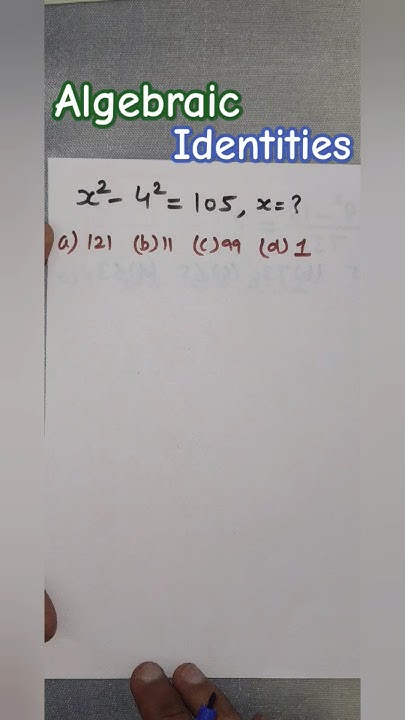 Algebraic
Identities
x² - 4² = 105, x = ?
a) 121 (b) 11 (c) 99 (d) 1